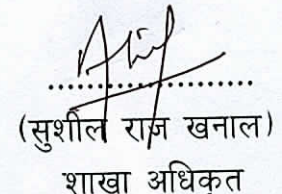 ....................
(सुशील राज खनाल)
शाखा अधिकृत